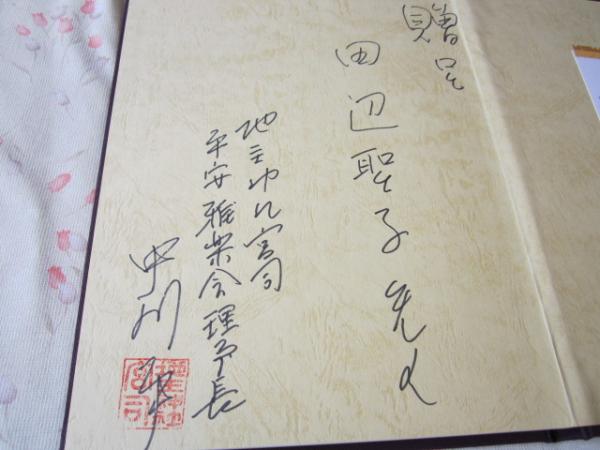 贈呈
田辺聖子先生
地主神社宮司
平安雅楽会理事長
中川
地主神社
宮司